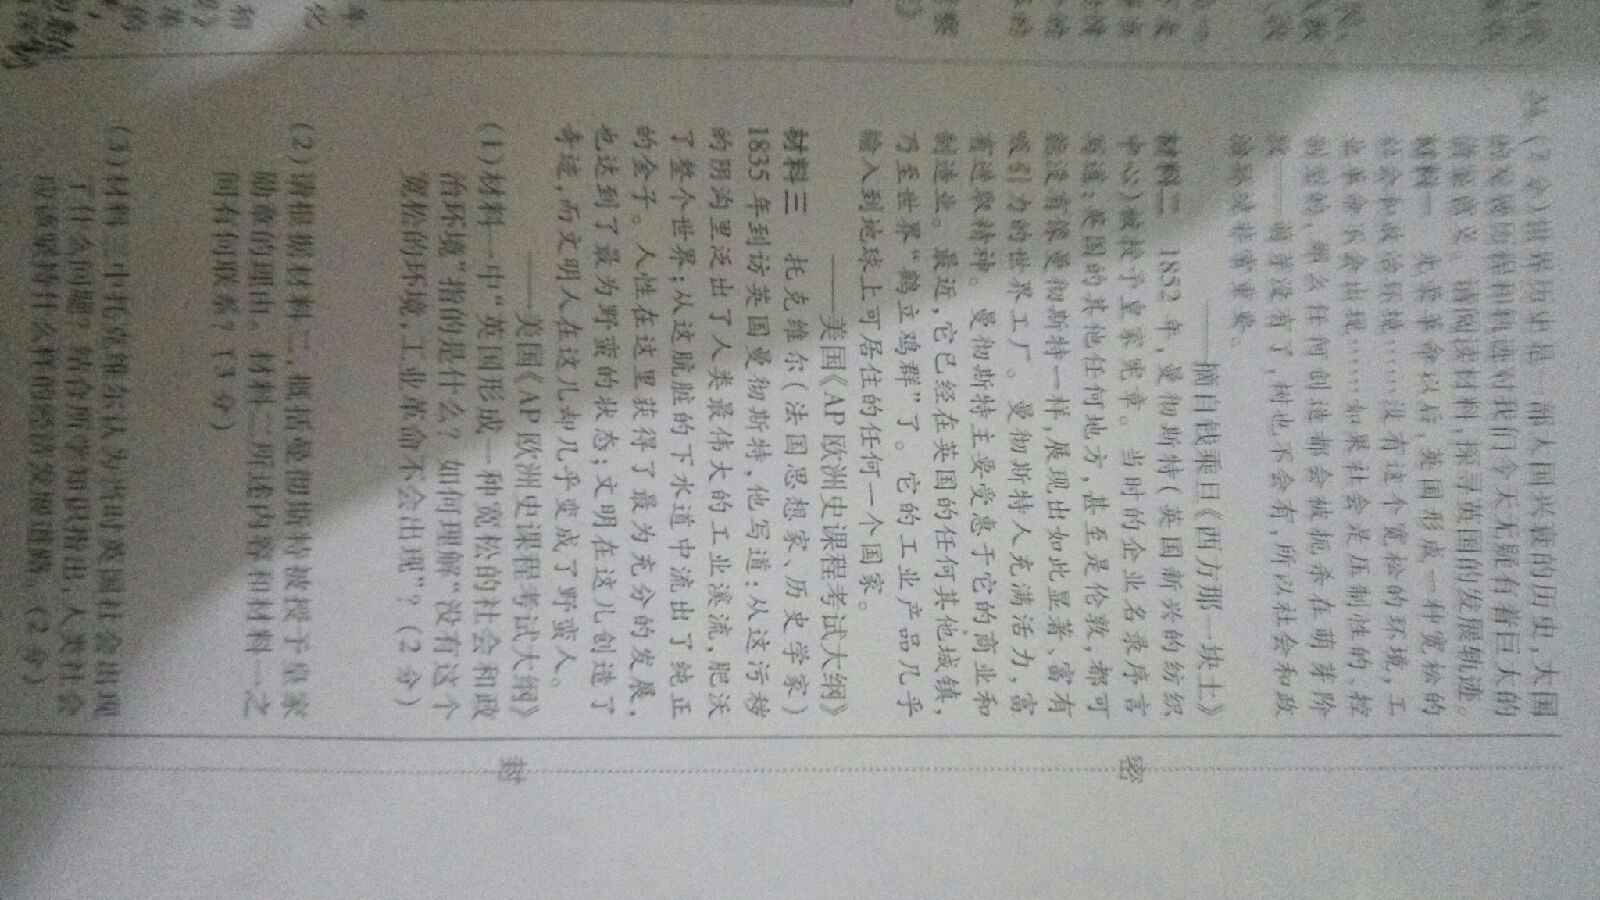 24.(7分)世界历史是一部大国兴衰的历史,大国
的发展历程和轨迹对我们今天无疑有着巨大的
借鉴意义。请阅读材料,探寻英国的发展轨迹。
材料一 光荣革命以后,英国形成一种宽松的
社会和政治环境……没有这个宽松的环境,工
业革命不会出现……如果社会是压制性的、控
制型的,那么任何创造都会被扼杀在萌芽阶
段——萌芽没有了,树也不会有,所以社会和政
治环境非常重要。
——摘自钱乘旦《西方那一块土》
材料二 1852年,曼彻斯特(英国新兴的纺织
中心)被授予皇家宪章。当时的企业名录序言
写道:英国的其他任何地方,甚至是伦敦,都可
能没有像曼彻斯特一样,展现出如此显著、富有
吸引力的世界工厂。曼彻斯特人充满活力,富
有进取精神。曼彻斯特主要受惠于它的商业和
制造业。最近,它已经在英国的任何其他城镇,
乃至世界“鹤立鸡群”了。它的工业产品几乎
输入到地球上可居住的任何一个国家。
——美国《AP欧洲史课程考试大纲》
材料三 托克维尔(法国思想家、历史学家)
1835年到访英国曼彻斯特,他写道:从这污秽
的阴沟里泛出了人类最伟大的工业溪流,肥沃
了整个世界;从这肮脏的下水道中流出了纯正
的金子。人性在这里获得了最为充分的发展,
也达到了最为野蛮的状态;文明在这儿创造了
奇迹,而文明人在这儿却几乎变成了野蛮人。
——美国《AP欧洲史课程考试大纲》
(1)材料一中“英国形成一种宽松的社会和政
治环境”指的是什么?如何理解“没有这个
宽松的环境,工业革命不会出现”?(2分)
(2)请根据材料二,概括曼彻斯特被授予皇家
勋章的理由。材料二所述内容和材料一之
间有何联系?(3分)
(3)材料三中托克维尔认为当时英国社会出现
了什么问题?结合所学知识指出,人类社会
应该坚持什么样的经济发展道路。(2分)
密
封